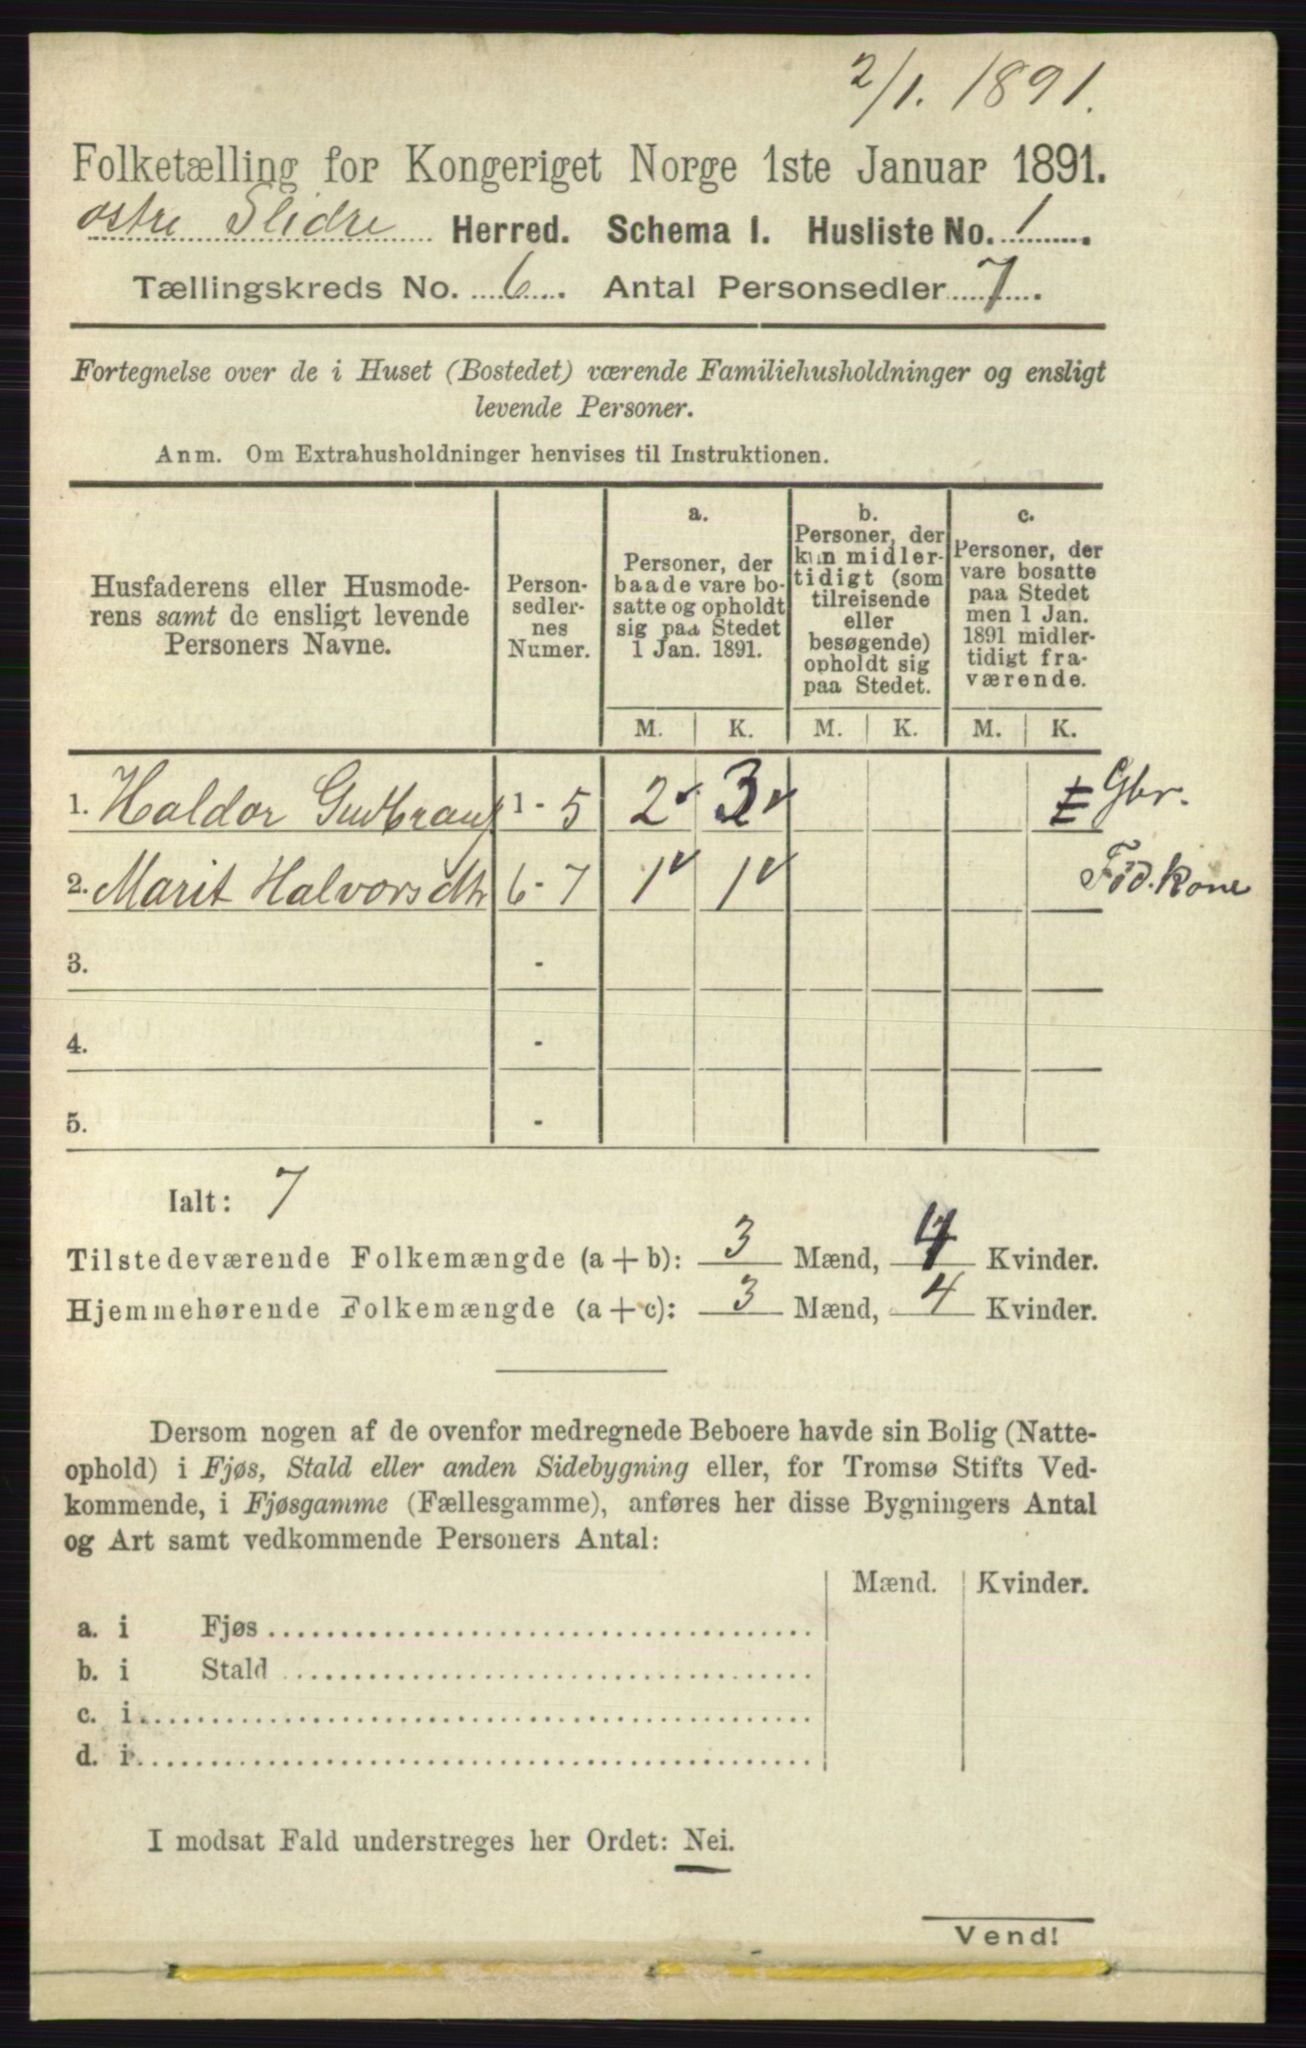 2/1. 1891.
Folketælling for Kongeriget Norge 1ste Januar 1891.
østre Slidre Herred. Schema I. Husliste No. 1.
Tællingskreds No. 6. Antal Personsedler 7.
Fortegnelse over de i Huset (Bostedet) værende Familiehusholdninger og ensligt
levende Personer.
Anm. Om Extrahusholdninger henvises til Instruktionen.
Husfaderens eller Husmode-
rens samt de ensligt levende
Personers Navne.
Person-
sedler-
nes
Numer.
a.
Personer, der
baade vare bo-
satte og opholdt
sig paa Stedet
1 Jan. 1891.
b.
Personer, der
kun midler-
tidigt (som
tilreisende
eller
besøgende)
opholdt sig
paa Stedet.
c.
Personer, der
vare bosatte
paa Stedet
men 1 Jan.
1891 midler-
tidigt fra-
værende.
M. K. M. K. M. K.
1. Haldor Gudbrans 1 - 5 2 3 Gbr.
2. Marit Halvorsdtr 6 - 7 1 1 Fød.kone
3. -
4. -
5. -
Ialt: 7
Tilstedeværende Folkemængde (a + b): 3 Mænd, 4 Kvinder.
Hjemmehørende Folkemængde (a + c): 3 Mænd, 4 Kvinder.
Dersom nogen af de ovenfor medregnede Beboere havde sin Bolig (Natte-
ophold) i Fjøs, Stald eller anden Sidebygning eller, for Tromsø Stifts Ved-
kommende, i Fjøsgamme (Fællesgamme), anføres her disse Bygningers Antal
og Art samt vedkommende Personers Antal:
Mænd. Kvinder.
a. i Fjøs
b. i Stald
c. i
d. i
I modsat Fald understreges her Ordet: Nei.
Vend!